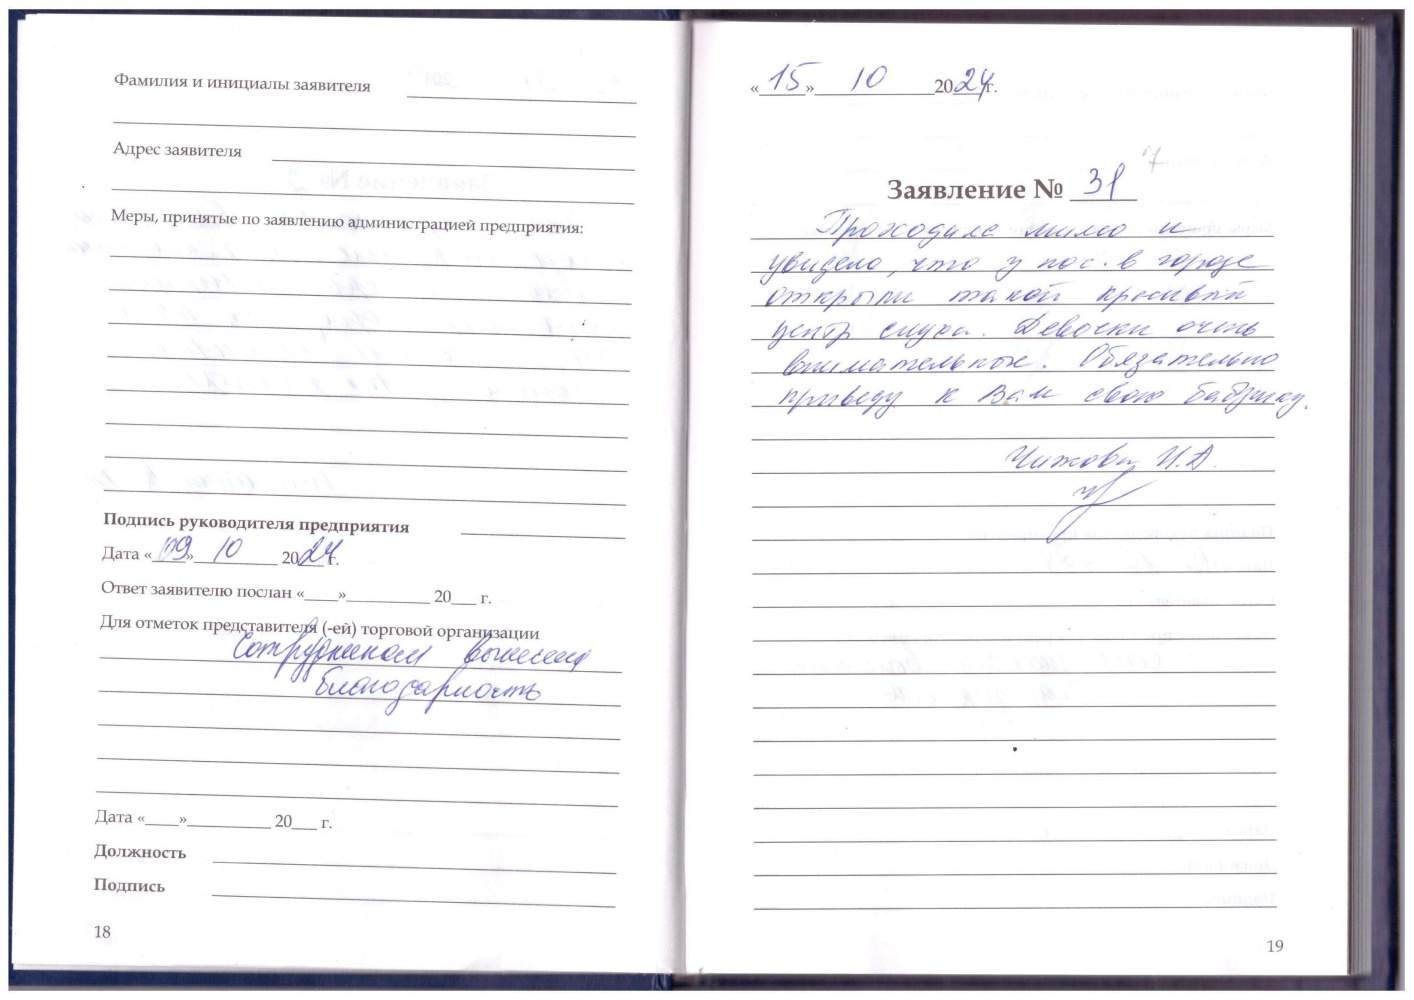 Фамилия и инициалы заявителя
Адрес заявителя
Меры, принятые по заявлению администрацией предприятия:
Подпись руководителя предприятия
Дата «09» 10 2024 г.
Ответ заявителю послан «____»__________ 20___ г.
Для отметок представителя (-ей) торговой организации
Сотрудникам вынесена
благодарность
Дата «____»__________ 20___ г.
Должность
Подпись
18
«15» 10 2024г.
7
Заявление № 31
Проходила мимо и
увидела, что у нас в городе
открыли такой красивый
центр слуха. Девочки очень
внимательные. Обязательно
приведу к Вам свою бабушку.
Чижова И.А.
19